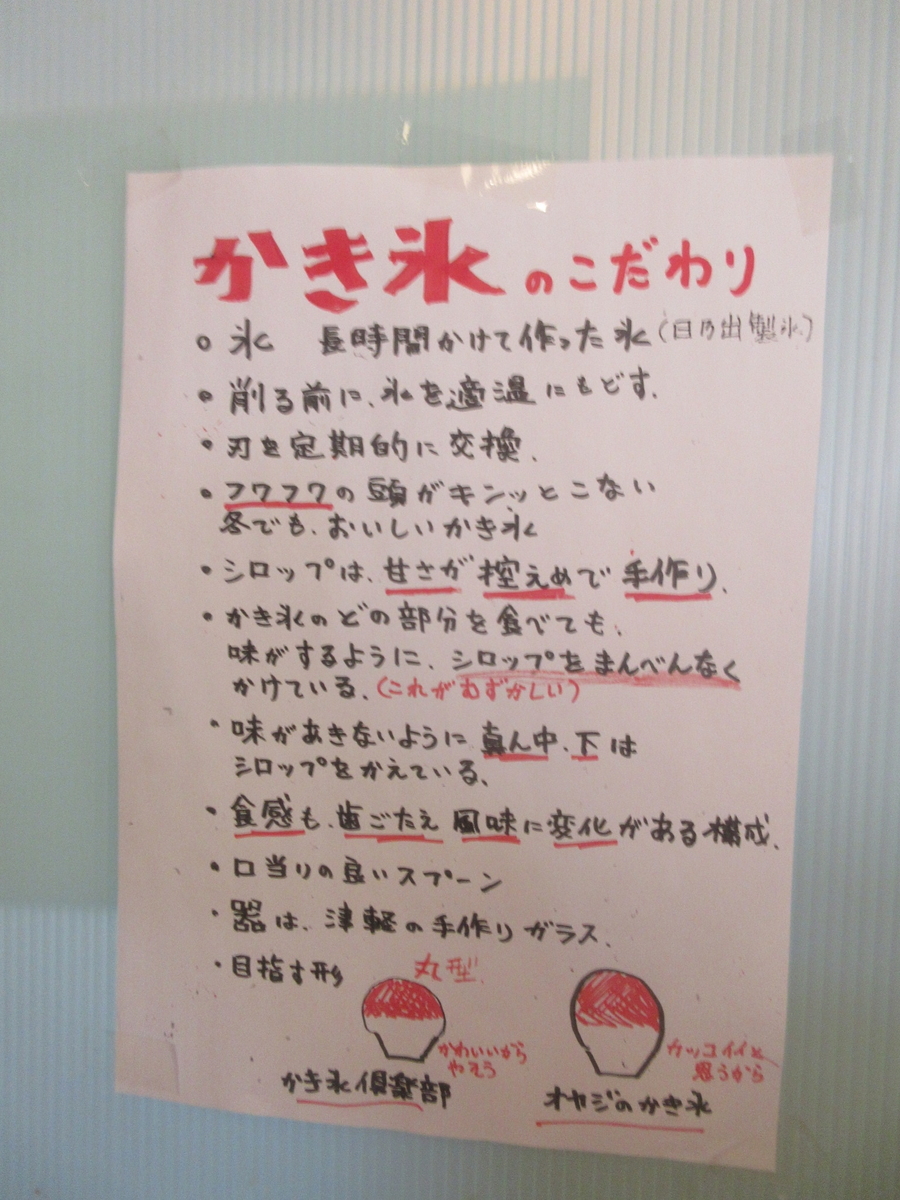 かき氷のこだわり
。氷 長時間かけて作った氷(日乃出製氷)
・削る前に、氷を適温にもどす.
・刃を定期的に交換.
・フワフワの頭がキンッとこない
冬でも、おいしいかき氷
・シロップは、甘さが控えめで手作り.
・かき氷のどの部分を食べても、
味がするように、シロップをまんべんなく
かけている.(これがむずかしい)
・味があきないように真ん中、下は
シロップをかえている.
・食感も、歯ごたえ 風味に変化がある構成.
・口当りの良いスプーン
・器は、津軽の手作りガラス.
・目指す形
丸型
かわいいから
やせう
かき氷倶楽部
カッコイイと
思うから
オヤジのかき氷